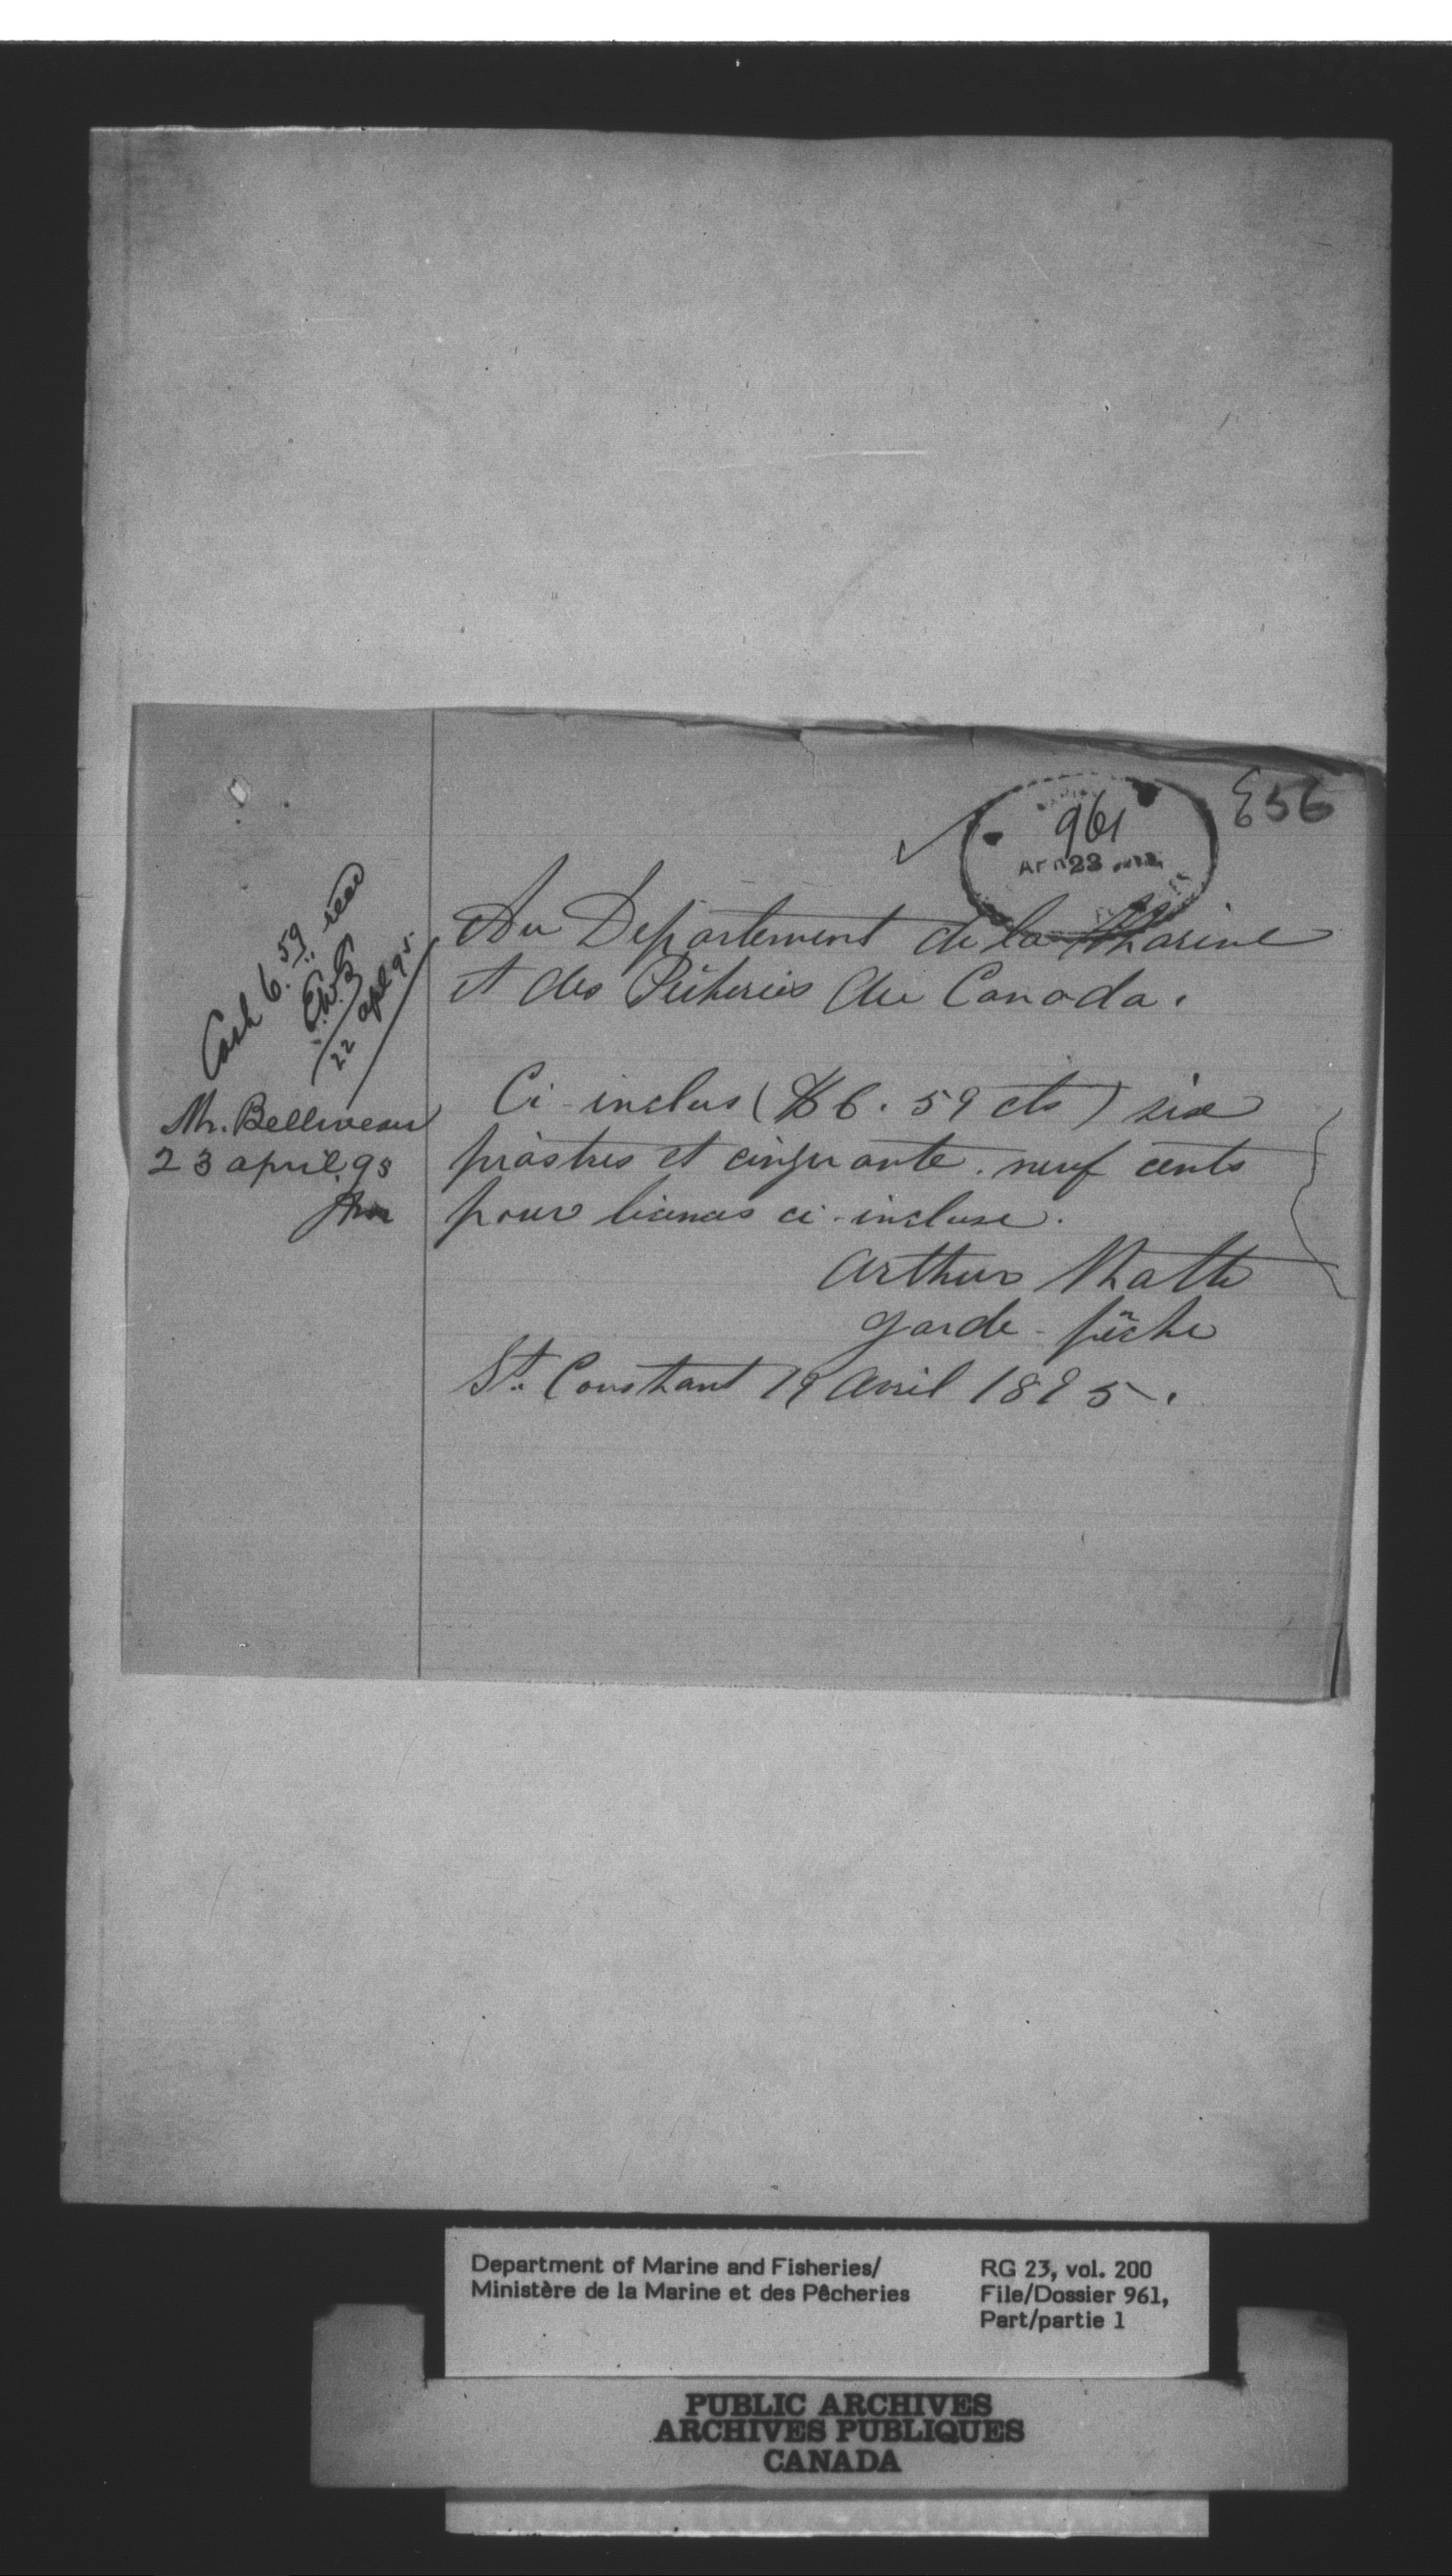 961
Apr 23
E56
Au Departement de la Marine
et des Pêcheries du Canada.
Cash 6.59 recd
E.W.G.
22 apl 95
Ci-inclus ($6.59 cts) six
piastres et cinquante-neuf cents
pour licences ci-incluse.
Mr. Belliveau
23 april. 95
Arthur
garde-pêche
St. Constant 19 Avril 1895.
Department of Marine and Fisheries/
Ministère de la Marine et des Pêcheries
RG 23, vol. 200
File/Dossier 961,
Part/partie 1
PUBLIC ARCHIVES
ARCHIVES PUBLIQUES
CANADA